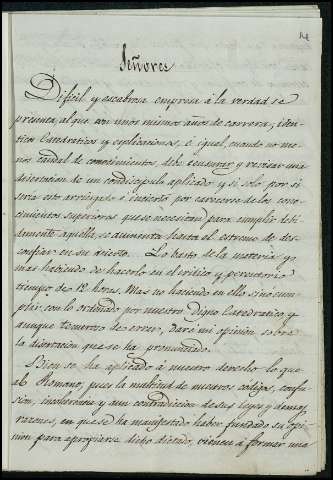 Señores
Dificil y escabrosa empresa á la verdad se
presenta, al que con unos mismos años de carrera, iden-
ticos Catedraticos y esplicaciones, e igual, cuando no me-
nos caudal de conocimientos, debe censurar y revisar una
disertacion de un condiscipulo aplicado, y si solo por si
seria esto arriesgado e incierto por carecerse de los cono-
cimientos superiores que se necesitan para cumplir debi-
damente aquella, se aumenta hasta el estremo de des-
confiar en su acierto. Lo basto de la materia y
mas habiendo de hacerlo en el critico y perentorio
tiempo de 12 horas. Mas no haciendo en ello sino cum-
plir, con lo ordenado por nuestro Digno Catedratico y
aunque temeroso de errar, daré mi opinion sobre
la disertacion que se ha pronunciado.
Bien se ha aplicado á nuestro derecho lo que
al Romano, pues la multitud de nuestros codigos, confu-
sion, incoherencia y aun contradicion de sus leyes y demas
razones, en que se ha manifestado haber fundado su opi-
nion para apropiarse dicho dictado, vienen á formar una